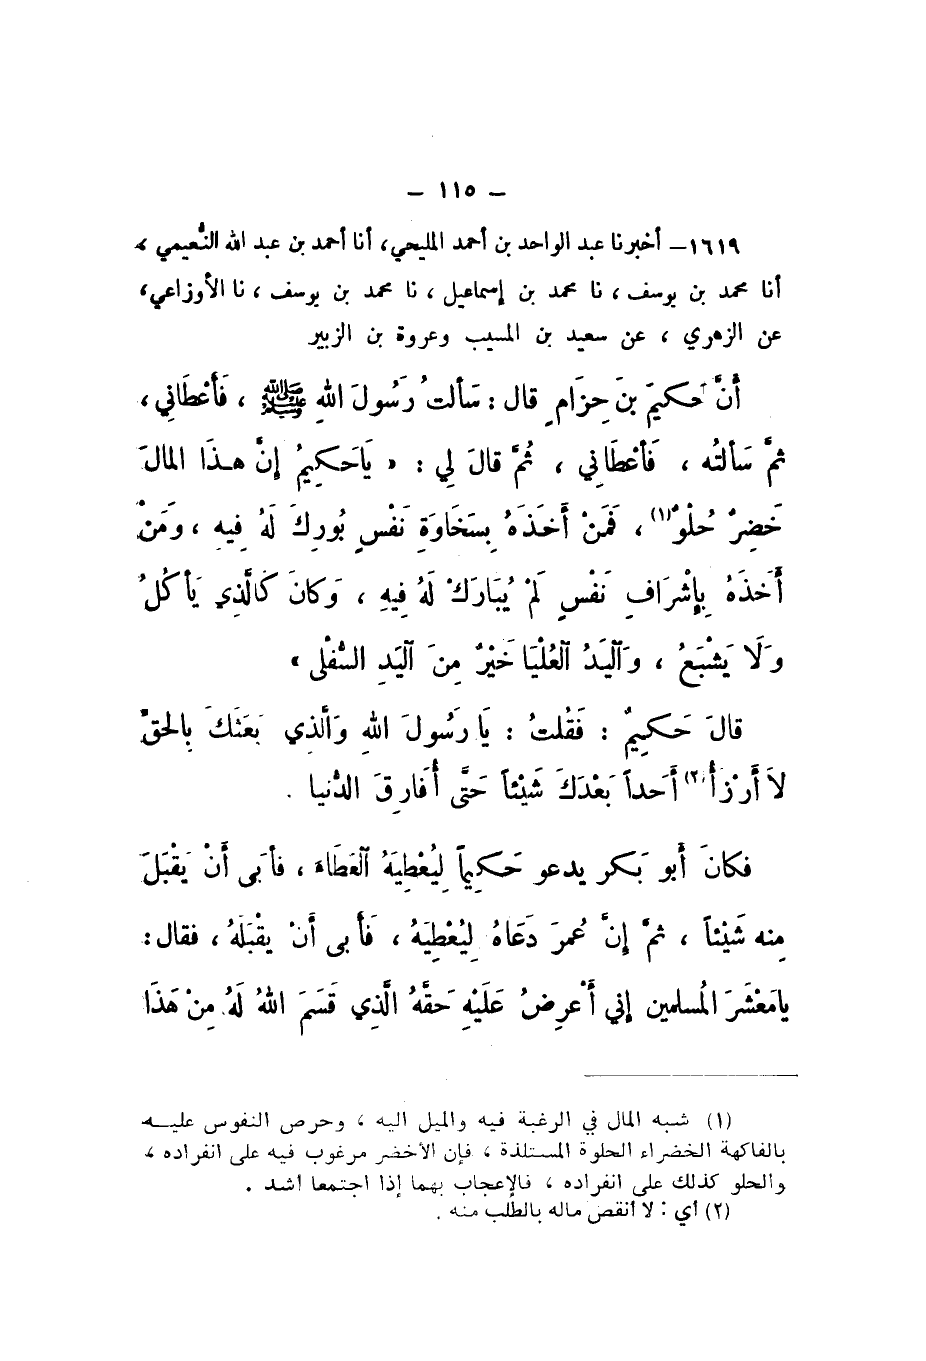 – ١١٥ –
١٦١٩– أخبرنا عبد الواحد بن أحمد المليحي، أنا أحمد بن عبد الله النُّعيمي ،
أنا محمد بن يوسف ، نا محمد بن إسماعيل ، نا محمد بن يوسف ، نا الأوزاعي،
عن الزهري ، عن سعيد بن المسيب وعروة بن الزبير
أَنَّ حَكيمَ بنَ حِزَامٍ قال : سَألتُ رَسُولَ اللهِ ﷺ ، فَأَعْطَاني ،
ثمَّ سَألتُه ، فَأعْطَاني ، ثُمَّ قالَ لي : « يَاحَكِيمُ إنَّ هـذَا المَالَ
خَضِرٌ حُلْوٌ(١) ، فَمَنْ أَخَذَهُ بِسَخَاوَةِ نَفْسٍ بُورِكَ لَهُ فيهِ ، ومَنْ
أَخَذَهُ بِإشْرَافِ نَفْسٍ لَمْ يُبَارَكْ لَهُ فِيهِ ، وَكانَ كَالَّذِي يَأكُلُ
وَلَا يَشْبَعُ ، وَٱليَدُ ٱلعُلْيَا خَيْرٌ مِنَ ٱليَدِ السُّفْلَى »
قالَ حَكِيمٌ : فَقُلتُ : يَا رَسُولَ اللهِ وَالَّذِي بَعَثَكَ بِالحَقِّ
لاَ أَرْزَأُ(٢) أَحَداً بَعْدَكَ شَيْئاً حَتَّى أُفَارِقَ الدُّنيا .
فكانَ أبو بَكرٍ يدعو حَكِيماً لِيُعْطِيَهُ ٱلعَطَاءَ ، فأبَى أَنْ يَقْبَلَ
مِنه شَيْئاً ، ثمَّ إنَّ عُمرَ دَعَاهُ لِيُعْطِيَهُ ، فَأبى أَنْ يقْبَلَهُ ، فقال :
يامَعْشَرَ المُسلمين إني أَعرِضُ عَلَيْهِ حَقَّهُ الَّذِي قَسَمَ اللهُ لَهُ مِنْ هَذَا
(١) شبه المال في الرغبة فيه والميل اليه ، وحرص النفوس عليـــه
بالفاكهة الخضراء الحلوة المستلذة ، فإن الأخضر مرغوب فيه على انفراده ،
والحلو كذلك على انفراده ، فالإعجاب بهما إذا اجتمعا أشد .
(٢) أي : لا أنقص ماله بالطلب منه .